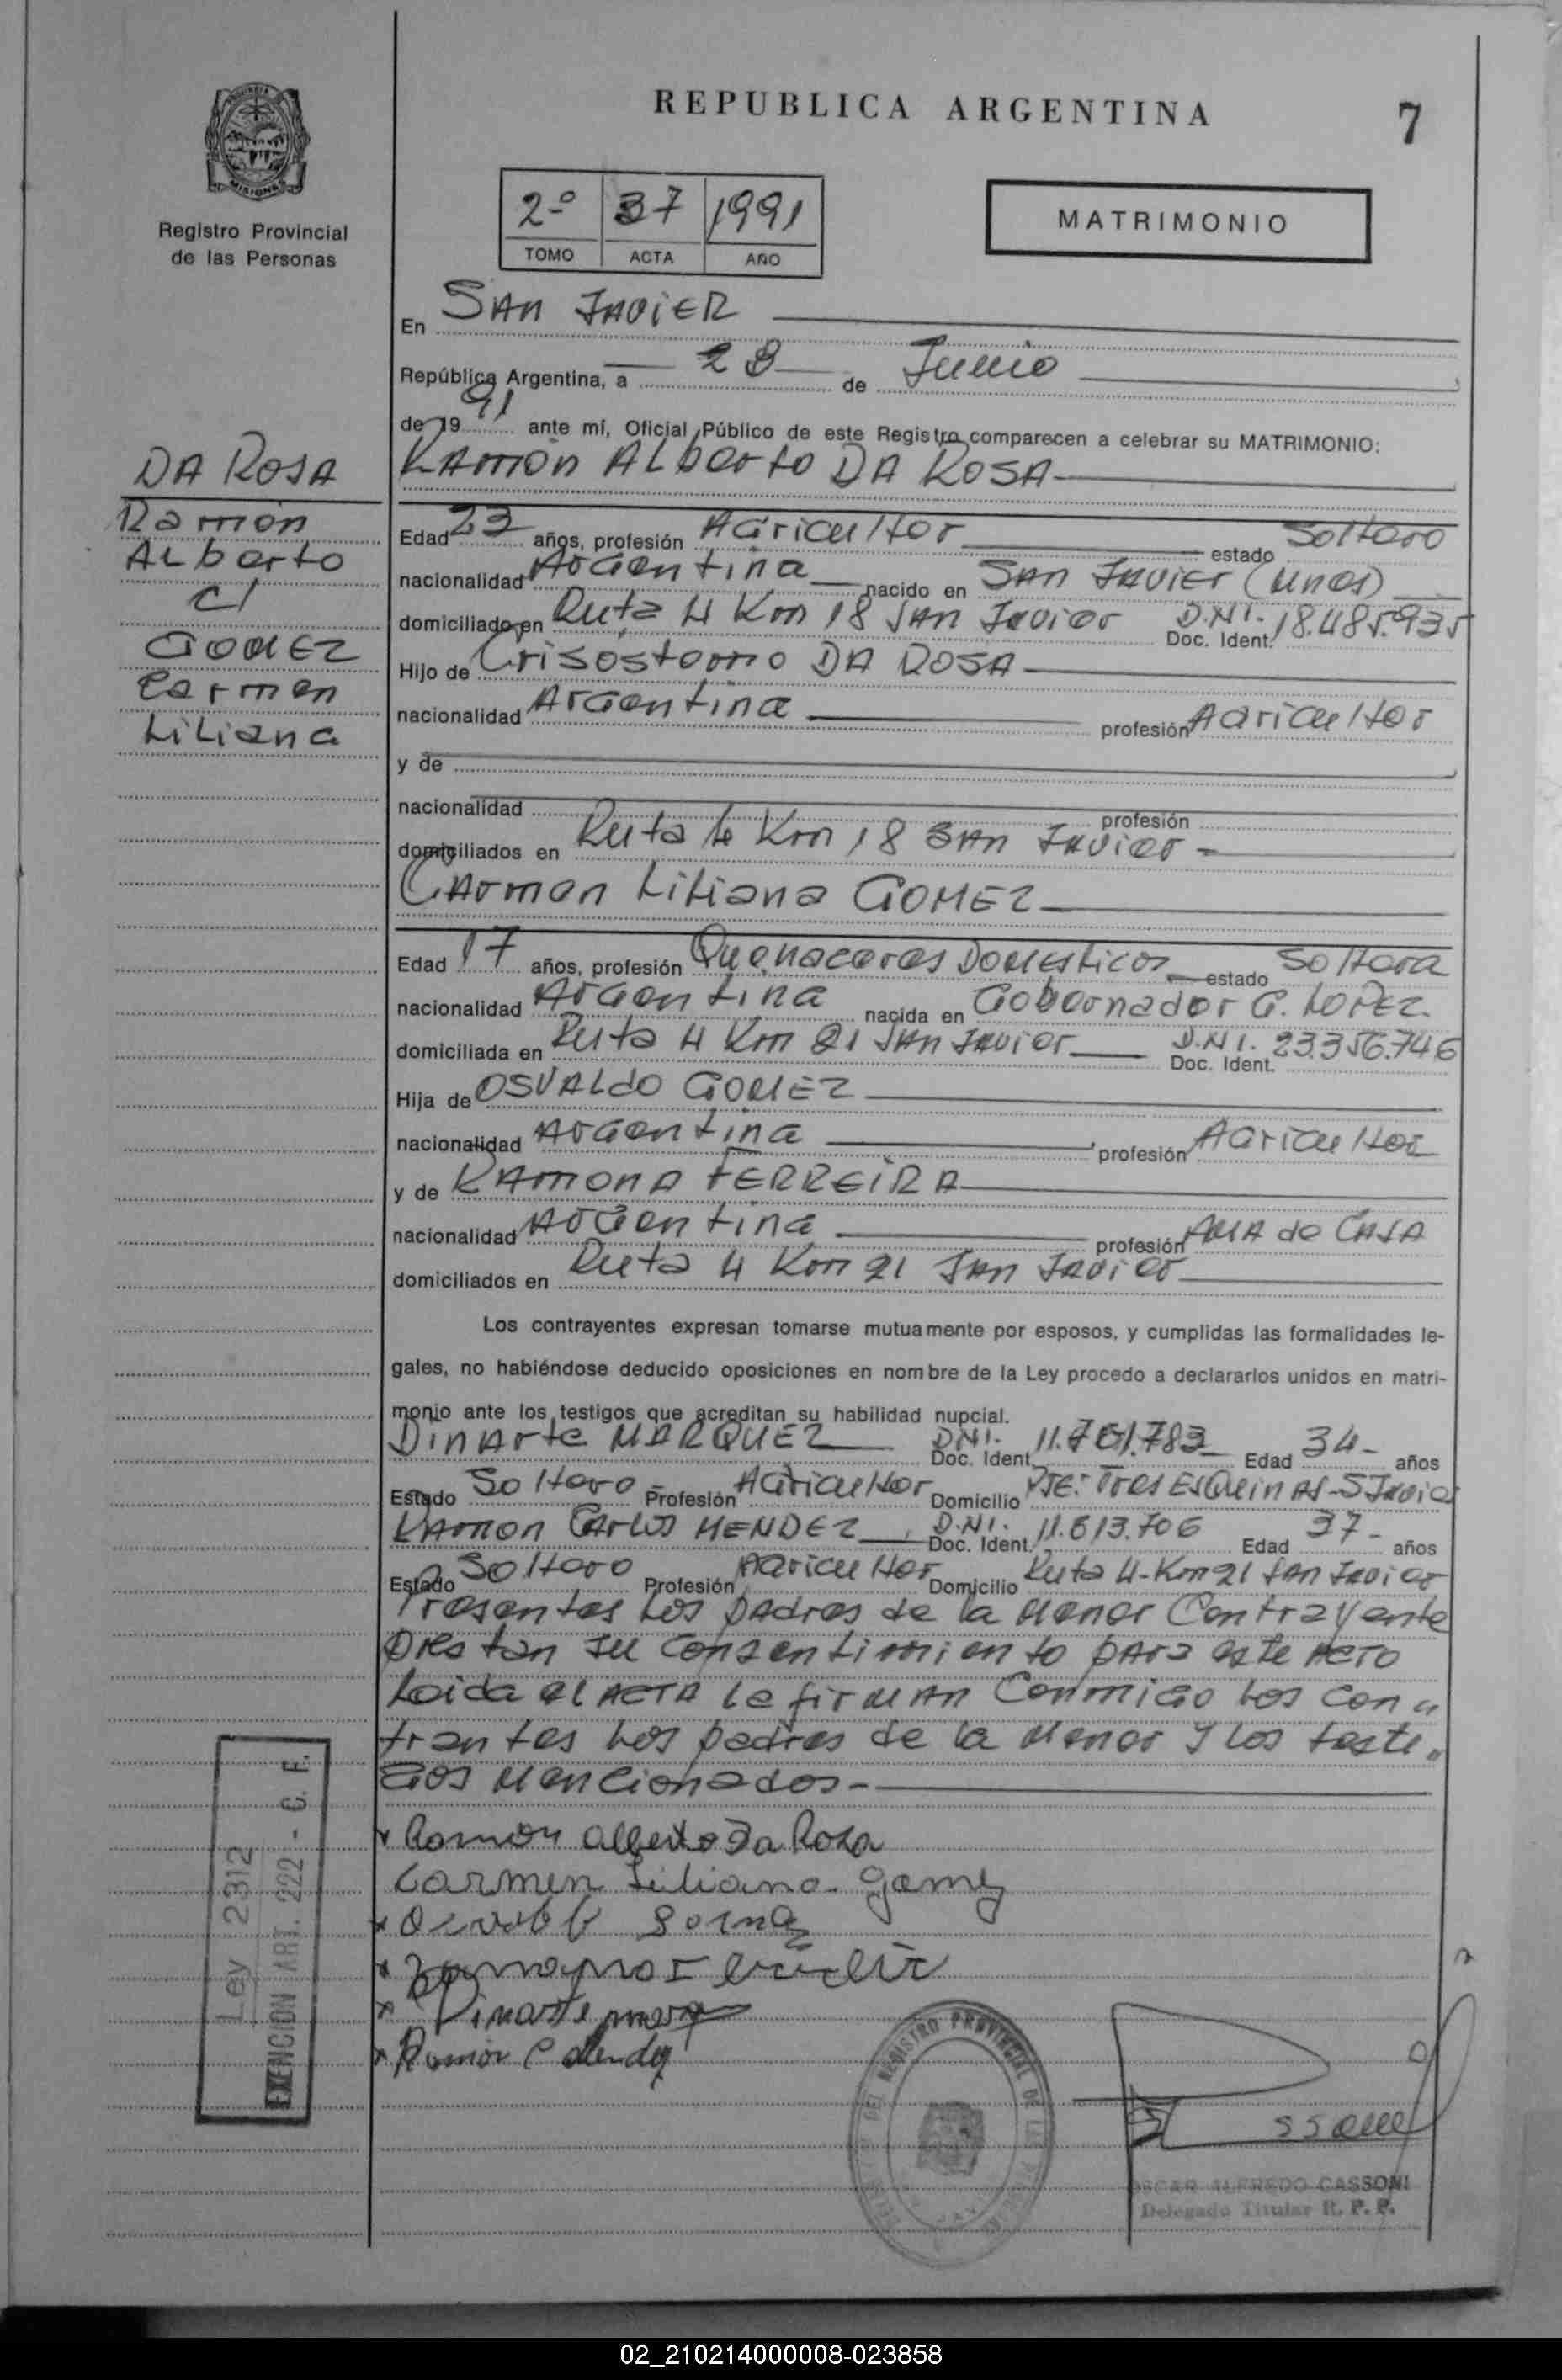 REPUBLICA ARGENTINA
7
MISIONES
Registro Provincial
de las Personas
2º 37 1991
TOMO ACTA AÑO
MATRIMONIO
En SAN JAVIER
República Argentina, a 28 de Junio
de 1991 ante mí, Oficial Público de este Registro comparecen a celebrar su MATRIMONIO:
DA ROSA
Ramón
Alberto
c/
GOMEZ
Carmen
Liliana
Ramón Alberto DA ROSA
Edad 23 años, profesión Agricultor estado Soltero
nacionalidad Argentina nacido en SAN JAVIER (Mnes)
domiciliado en Ruta 4 Km 18 SAN Javier D.N.I. Doc. Ident. 18.485.935
Hijo de Crisóstomo DA ROSA
nacionalidad Argentina profesión Agricultor
y de
nacionalidad profesión
domiciliados en Ruta 4 Km 18 SAN Javier -
Carmen Liliana GOMEZ
Edad 17 años, profesión Quehaceres Domesticos estado Soltera
nacionalidad Argentina nacida en Gobernador G. LOPEZ.
domiciliada en Ruta 4 Km 21 SAN Javier D.N.I. Doc. Ident. 23.356.746
Hija de OSVALdO GOMEZ
nacionalidad Argentina profesión Agricultor
y de RAMONA FERREIRA
nacionalidad Argentina profesión AMA de CASA
domiciliados en Ruta 4 Km 21 San Javier
Los contrayentes expresan tomarse mutuamente por esposos, y cumplidas las formalidades le-
gales, no habiéndose deducido oposiciones en nombre de la Ley procedo a declararlos unidos en matri-
monio ante los testigos que acreditan su habilidad nupcial.
Dinarte MARQUEZ DNI. Doc. Ident. 11.761.783 Edad 34- años
Estado Soltero - Profesión Agricultor Domicilio Pje: Tres EsQuinAs-S Javier
Ramon Carlos MENDEZ D.N.I. Doc. Ident. 11.613.706 Edad 37- años
Estado Soltero Profesión Agricultor Domicilio Ruta 4-Km 21 San Javier
Presentes Los padres de la Menor Contrayente
prestan su consentimiento para este ACTO
Leida el ACTA la firman Conmigo Los con "
trantes Los padres de la Menor y los testi "
gos Mencionados -
Ramón Alberto Da Rosa
Carmen Liliana Gomez
Dinarte
Ramón C Mendez
Ley 2312
EXENCION ART. 222 - C. F.
DEL REGISTRO PROVINCIAL DE LAS PERSONAS
OSCAR ALFREDO CASSONI
Delegado Titular R. P. P.
02_210214000008-023858